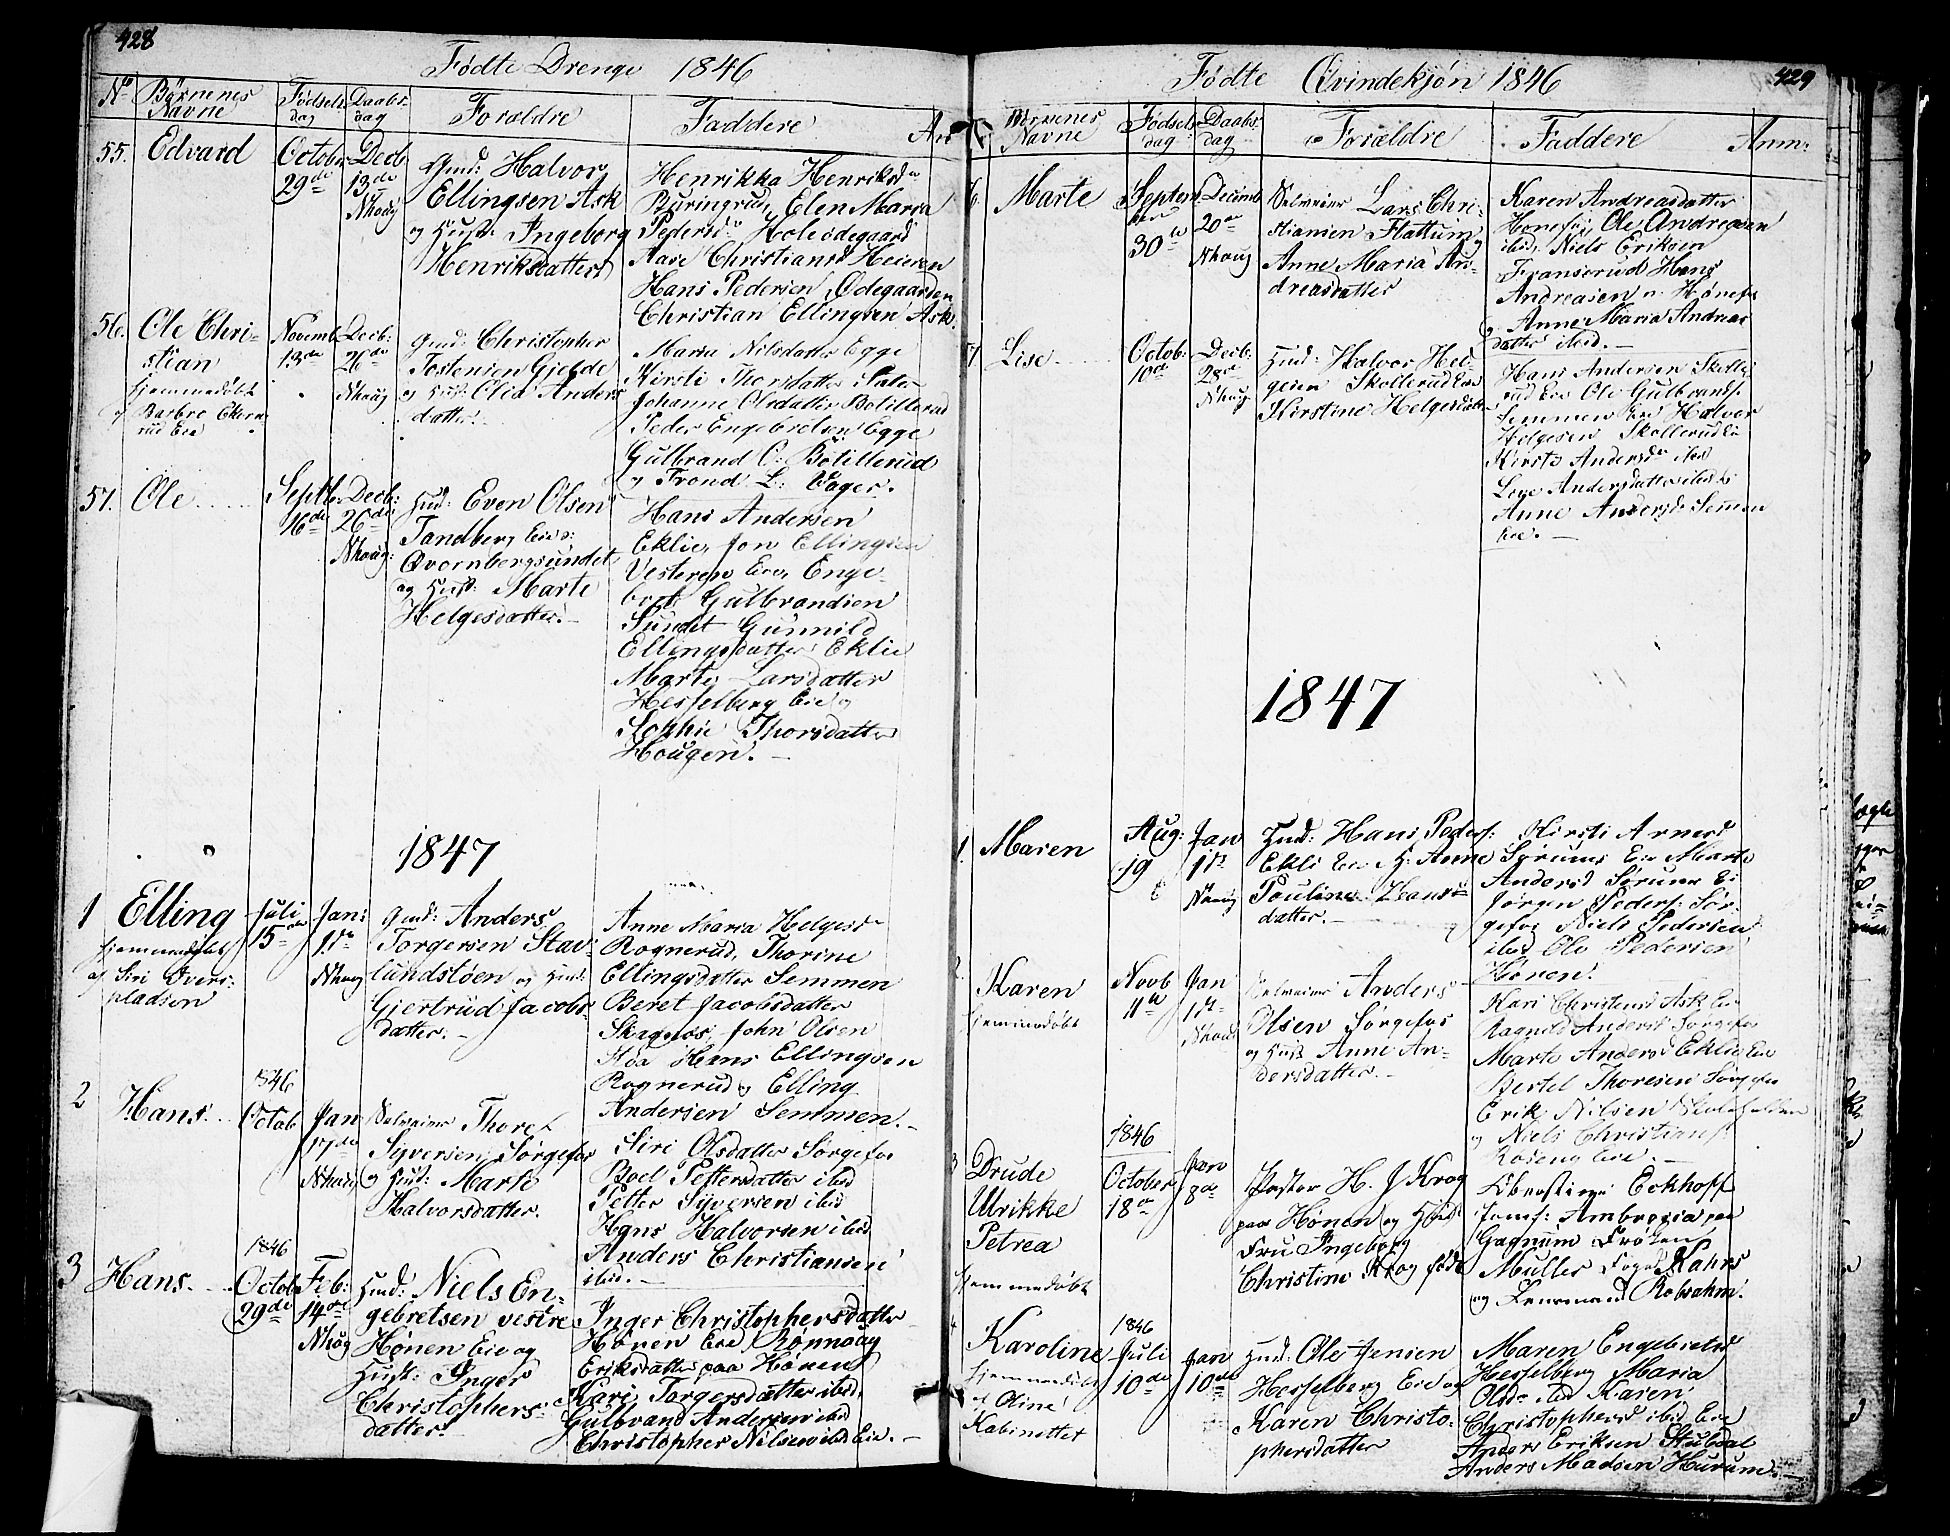 428
Födte Drenge 1846
No Börnenes Navne Födsels dag Daabs dag Forældre Faddere An
55. Edvard Octobr 29de Decb 13de Nhoug
Gmd: Halvor
Ellingsen Ask
og Hust: Ingeborg
Henriksdatter
Henrikka Henriksdr
Büringrud, Elen Maria
Pedersdr Hole ödegaard
Aase Christiansd Heieren
Hans Pedersen, Ödegaarden
Christian Ellingsen Ask.
56. Ole Christian Novemb 13de Decb: 26de Nhoug
hjemmedöbt
af Barbro Ekornrud Eie
Gmd: Christopher
Tostensen Gjelde
og Hust: Olia Anders
datter.
Maria Nilsdatter Egge
Kirsti Thorsdatter
Johanne Olsdatter Botillerud
Peder Engebretsen Egge
Gulbrand O: Botillerud
og Trond L: Vager.
57. Ole Septb: 16de Decb: 26de Nhoug:
Hmd: Even Olsen
Tandberg Eie:
Qvernbergsundet
og Hust: Marte
Helgesdatter.
Hans Andersen
Eklie, Jon Ellingsen
Vesteren Eie, Enge-
bret Gulbrandsen
Sundet Gunnild
Ellingsdatter Eklie
Marte Larsdatter
Hesselberg Eie og
Sophie Thorsdatter
Hougen.
1847
1 Elling Juli 15de Jan: 1te Nhoug
hjemmedöbt
af Siri Övers-
pladsen
Gmd: Anders
Torgersen Stav-
lundstöen og Hust:
Gjertrud Jacobs-
datter.
Anne Maria Helgesdr
Rognerud, Thorine
Ellingsdatter Semmen
Beret Jacobsdatter
Skagnæs, John Olsen
Hans Ellingsen
Rognerud og Elling
Andersen Semmen.
2 Hans 1846 Octob Jan 17de Nhoug
Selveier Thore
Syversen Sørgefos
og Hust: Marte
Halvorsdatter.
Siri Olsdatter Sørgefos
Boel Pettersdatter ibid
Petter Syversen ibid
Hans Halvorsen ibid
Anders Christiansen
ibid.
3 Hans 1846 Octob 29de Feb: 14de Nhoug
Hmd: Niels En-
gebretsen vestre
Hønen Eie og
Hust: Inger
Christophers-
datter
Inger Christophersdatter
Hønen Eie, Rønnaug
Eriksdatter paa Hønen
Kari Torgersdatter ibid,
Gulbrand Andersen ibid
Christopher Nilsen ibid Eie.
429
Födte Qvindekjön 1846
Börnenes Navne Födsels dag Daabs dag Forældre Faddere Anm:
6. Marte Septembere 30te Decemb 20de Nhoug
Selveier Lars Chri-
stiansen Flattum og
Anne Maria An-
dreasdatter
Karen Andreasdatter
Honefos Ole Andreasen
ibid: Niels Eriksen
Franserud Hans
Andreasen n: Hønefos
og Anne Maria Andreas
datter ibid.
7 Lise Octob: 10de Decb: 28de Nhoug
Hmd: Halvor Hel-
gesen Skollerud Eie
Kirstine Helgesdatter
Hans Andersen Skolle-
rud Eie Ole Gulbrands.
Semmen Eie Halvor
Helgesen Skollerud Ei
Kirsti Andersdr
Lise Andersdatter ibid:
Anne Andersd: Semmen
Eie.
1847
1. Maren Aug: 19 Jan 1te Nhoug
Hmd: Hans Peders:
Ekli Eie H: Anne
Pauline Hans-
datter.
Kirsti Arnesd
Sørum Eie Marte
Andersd Sørum Ei
Jörgen Peders: Sør-
gefos Niels Pedersen
ibid Ole Pedersen
Hønen.
2. Karen Novb 11te Jan 1te Nhoug
hjemmedöbt
Selveier Anders
Olsen Sørgefos
og Hust Anne An-
dersdatter.
Kari Christensd Ask Eie
Ragnild Andersd Sørgefos
Marte Andersd Eklie Eie
Bertel Thoresen Sørgefos
Erik Nilsen
og Niels Christians:
Roseng Eie.
3 Drude Ulrikke Petrea 1846 October 18de Jan 8de
hjemmedöbt
Pastor H. J Krog
paa Hønen og Hust
Fru Ingeborg
Christine Krog född
Eckhoff
Jomf: Ambrosia paa
Gagnum Frøken
Muller Foged Nahrs
og Lensmand Robsahm.
4 Karoline 1846 Juli 10de Jan 10de
hjemmedöbt
af Oline
Kabinettet
Hmd: Ole Jensen
Hesselberg Eie og
Karen Christo-
phersdatter
Maren Engebretsd
Hesselberg Maria
Olsdr ibd Karen
Christophersd ibid Eie
Anders Eriksen Stubdal
Anders Madsen Hurum.